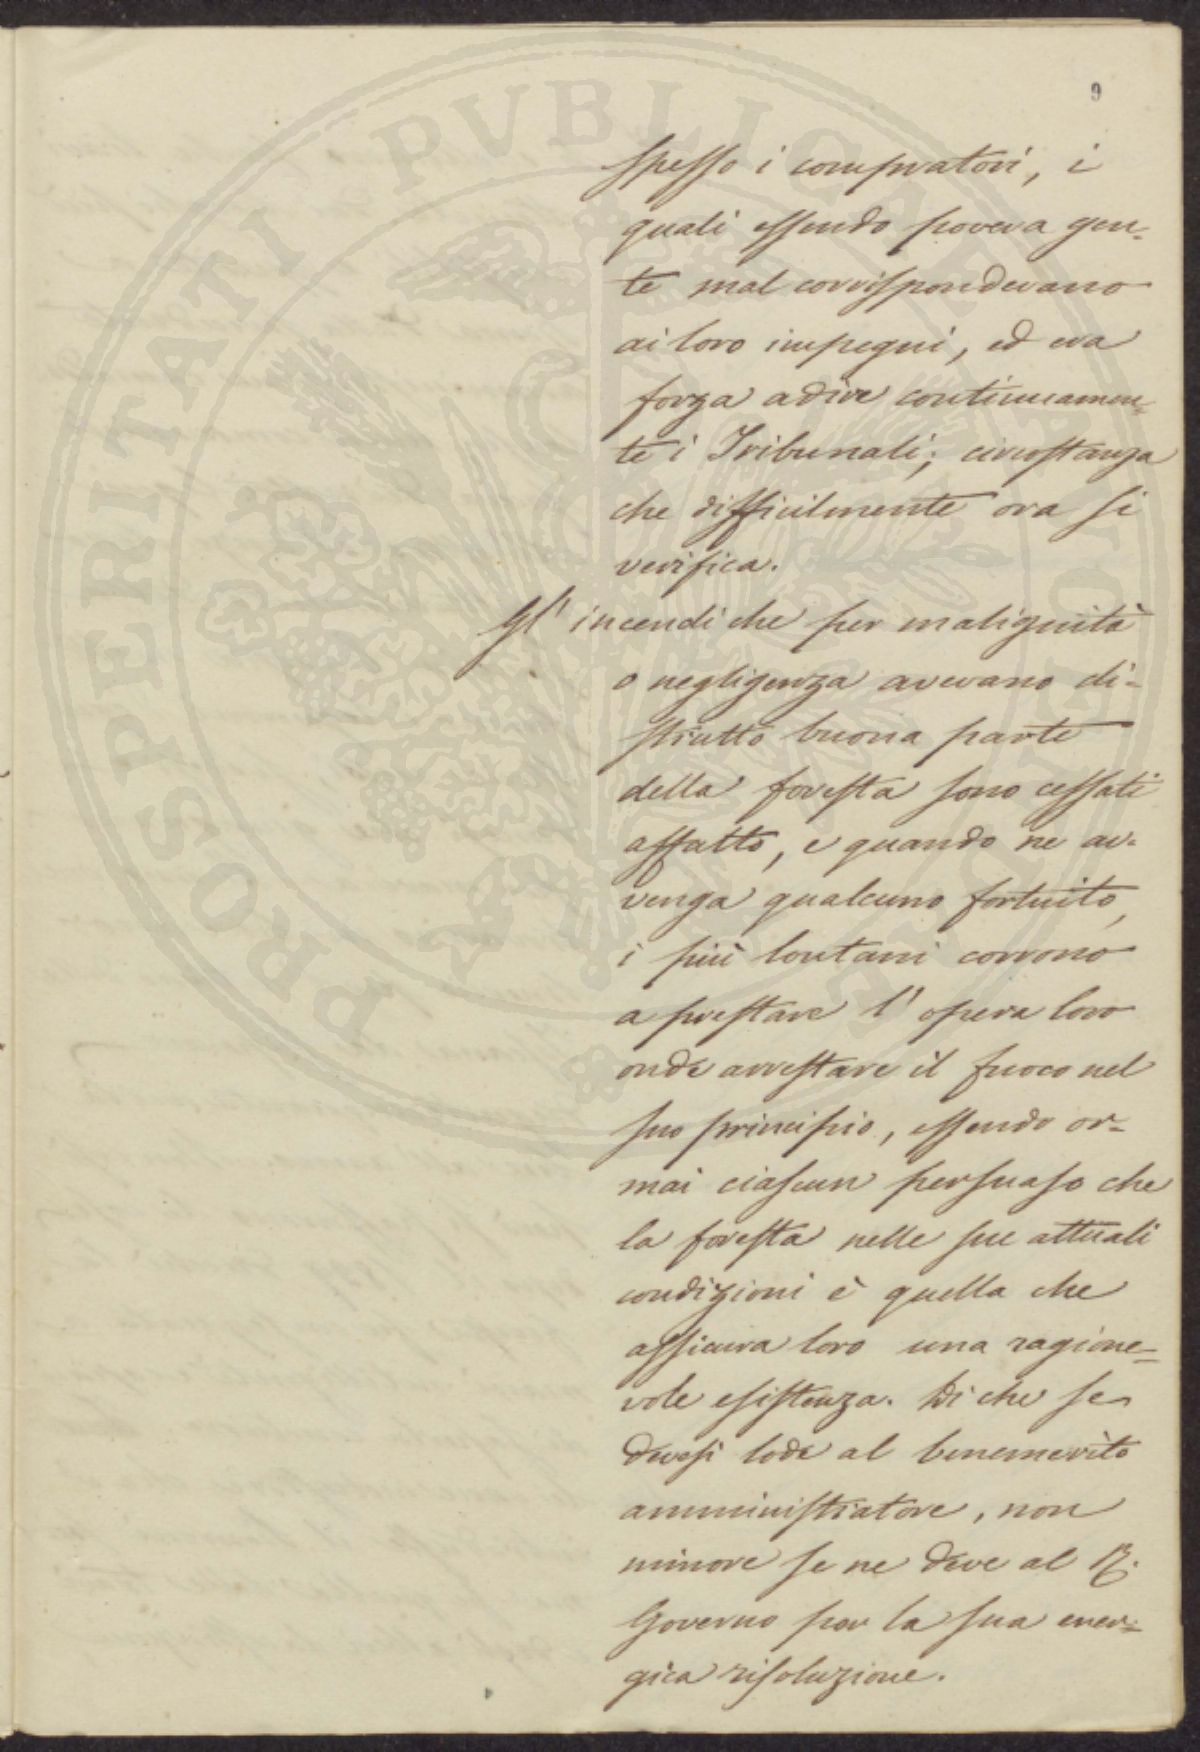 9
spesso i compratori, i
quali essendo povera gen-
te mal corrispondevano
ai loro impegni, ed era
forza adire continuamen-
te i Tribunali; circostanza
che difficilmente ora si
verifica.
Gl' incendi che per malignità
o negligenza avevano di-
strutto buona parte
della foresta sono cessati
affatto, e quando ne av-
venga qualcuno fortuito,
i più lontani corrono
a prestare l' opera loro
onde arrestare il fuoco nel
suo principio, essendo or-
mai ciascun persuaso che
la foresta nelle sue attuali
condizioni è quella che
assicura loro una ragione-
vole esistenza. Di che se
devesi lode al benemerito
amministratore, non
minore se ne deve al R.
Governo per la sua ener-
gica risoluzione.
PROSPERITATI PVBLICAE